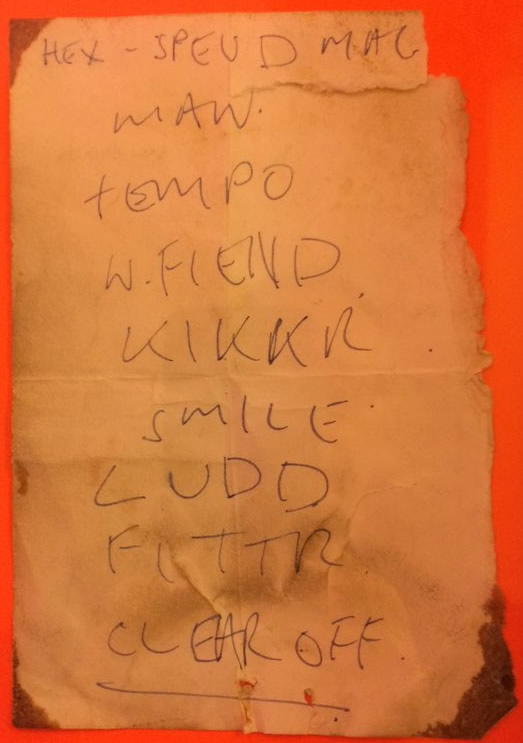 HEX - SPEUD MAG
MAW.
TEMPO
W.FIEND
KIKKR.
SMILE.
LUDD
FITTR
CLEAR OFF.